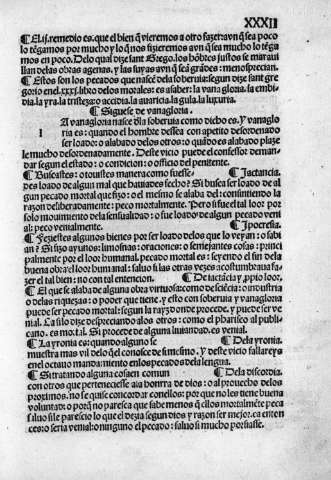 XXXII
¶ El.ij.remedio es. que el bien q̃ vieremos a otro fazer: avn q̃ sea poco
lo tẽgamos por mucho y lo q̃ nos fizieremos avn q̃ sea mucho lo tẽga
mos en poco. Delo qual dize sant Grego. los hõbres justos se maraui
llan delas obras agenas. y las suyas avn q̃ seã grãdes: menosprecian.
¶ Estos son los pecados que nacẽ dela soberuia: segun dize sant gre
gorio enel .xxxj. libro delos morales: es a saber: la vana gloria. la embi
dia. la yra. la tristeza: o accidia. la auaricia. la gula. la luxuria.
¶ Siguese de vanagloria.
A vanagloria nasce dela soberuia como dicho es. Y vanaglo
l ria es: quando el hombre dessea con apetito desordenado
ser loado: o alabado delos otros: o quãdo es alabado plaze
le mucho desordenadamente. Deste vicio puede el confessor deman
dar segun el estado: o condicion: o officio del penitente.
¶ Buscastes: o touistes manera como fuesse ¶ Jactancia.
des loado de algun mal que huuiades fecho? Si busca ser loado de al
gun pecado mortal que fizo: o el mesmo se alaba del: consintiendo la
razon deliberadamente: peco mortalmente. Pero si fue el tal loor por
solo mouimiento dela sensualidad: o fue loado de algun pecado veni
al: peco venialmente. ¶ Ipocresia.
¶ Fezistes algunos bienes por ser loado delos que lo veyan: o sabi
an? Si fizo ayunos: limosnas: oraciones: o semejantes cosas: princi
palmente por el loor humanal. pecado mortal es: seyendo el fin dela
buena obra el loor humanal: saluo si las otras vezes acostumbraua fa-
zer el tal bien: no con tal entencion. ¶ De jactãcia y. ꝓpio loor.
¶ El que se alaba de alguna obra virtuosa: como de sciẽcia: o industria
o delas riquezas: o poder que tiene. y esto con soberuia y vanagloria
puede ser pecado mortal: segun la rayz donde procede. y puede ser ve
nial. Ca si lo dize despreciando alos otros: como el phariseo al publi-
cano. es mortal. Si procede de alguna liuiandad. es venial.
¶ La yronia es: quando alguno se ¶ Dela yronia.
muestra mas vil delo q̃ el conosce de si mesmo. Y deste vicio fallareys
enel octauo mandamiento enlos pecados dela lengua.
¶ Si tratando alguna cosa en comun ¶ Dela discordia.
con otros que pertenecesse ala honrra de dios: o al prouecho delos
proximos. no se quiso concordar conellos: por que no les tiene buena
voluntad: o porq̃ no paresca que sabe menos q̃ ellos mortalmẽte peca
saluo si le parescio lo que el dezia segun dios y razon ser mejor. ca enton
ces: o seria venial: o ninguno el pecado: saluo si mucho porfiasse.